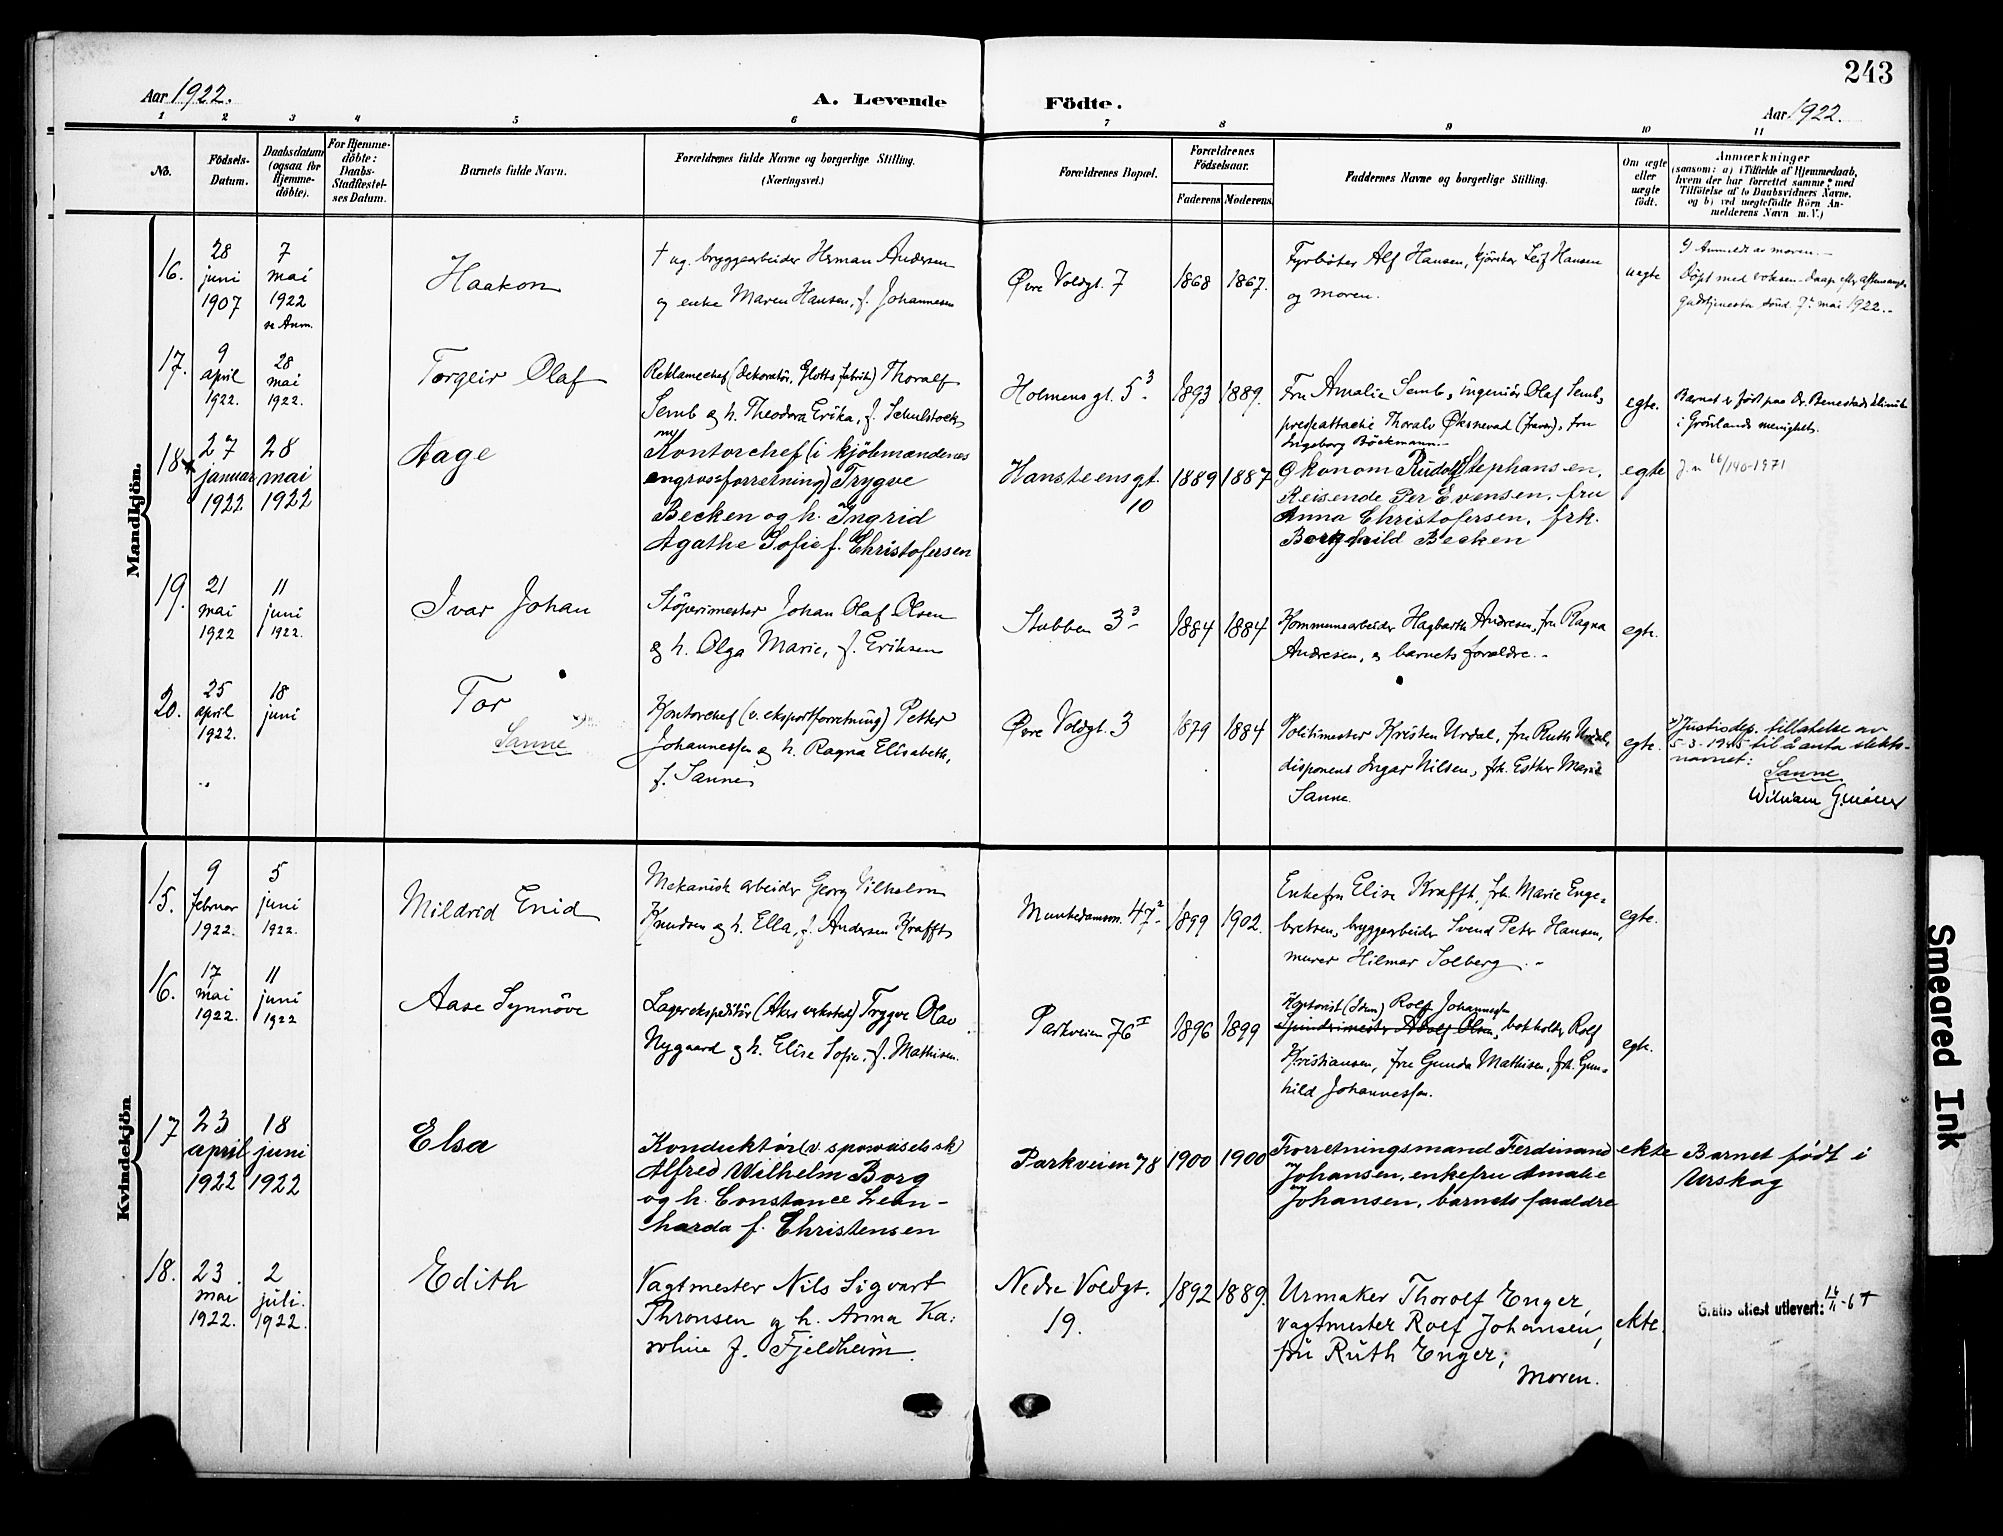 243
Aar 1922. A. Levende Födte. Aar 1922.
1 2 3 4 5 6 7 8 9 10 11
No.
Födsels-
Datum.
Daabsdatum
(ogsaa for
Hjemme-
döbte).
For Hjemme-
döbte:
Daabs-
Stadfæstel-
ses Datum.
Barnets fulde Navn.
Forældrenes fulde Navne og borgerlige Stilling.
(Næringsvei.)
Forældrenes Bopæl.
Forældrenes
Födselsaar.
Faderens Moderens
Faddernes Navne og borgerlige Stilling.
Om ægte
eller
uægte
födt.
Anmærkninger
(saasom: a) i Tilfælde af Hjemmedaab,
hvem der har forrettet samme, med
Tilföielse af to Daabsvidners Navne,
og b) ved uegtefödte Börn An-
melderens Navn m. V.)
Mandkjön.
16.
28
juni
1907
7
mai
1922
se Anm.
Haakon
† ug. bryggearbeider Herman Andersen
og enke Maren Hansen, f. Johannesen
Øvre Voldgt. 7
1868
1867.
Fyrböter Alf Hansen, kjörsker Leif Hansen
og moren.
uegte
Anmeldt av moren.
Döpt med voksen-daap efter aftensangs-
gudstjenesten sönd. 7de mai 1922.
17.
9
april
1922.
28
mai
1922.
Torgeir Olaf
Reklamechef (dekoratör, Glotts fabrik) Thoralf
Semb og h. Theodora Erika, f. Schulstock
Holmens gt. 5 3
1893
1889.
Fru Amalie Semb, ingeniör Olaf Semb,
presseattaché Thoralv Øksnevad (fravr.), fru
Ingeborg Böckmann.
egte.
Barnet er født paa Dr. Benestads klinik
i Grönlands menighet.
18
27
januar
1922
28
mai
1922
Aage
Kontorchef (i kjöbmændenes
engrosforretning) Trygve
Becken og h. Ingrid
Agathe Sofie f. Christofersen
Hansteensgt.
10
1889
1887
Økonom Rudolf Stephansen,
Reisende Per Evensen, fru
Anna Christofersen, frk.
Borghild Becken
egte
J.n 16/140-1971
19.
21
mai
1922
11
juni
1922.
Ivar Johan
Stöperimester Johan Olaf Olsen
og h. Olga Marie, f. Eriksen
Stubben 3 3
1884
1884
Kommunearbeider Hagbarth Andresen, fru Ragna
Andresen, og barnets forældre.
egte.
20.
25
april
1922.
18
juni
Tor
Sanne
Kontorchef (v. eksportforretning) Petter
Johannessen og h. Ragna Elisabeth,
f. Sanne
Øvre Voldgt. 3
1879
1884
Politimester Kristen Urdal, fru Ruth Urdal,
disponent Ingar Nilsen, frk. Esther Marie
Sanne.
egte.
x) Justisdep. tillatelse av
5-3-1945 til å anta slekts-
navnet:
Sanne
William
Kvindekjön
15.
9
februar
1922.
5
juni
1922.
Mildrid Enid
Mekanisk arbeider Georg Vilhelm
Knudsen og h. Ella, f. Andersen Krafft
Munkedamsv. 47 2
1899
1902.
Enkefru Elise Krafft, frk. Marie Enge-
bretsen, bryggearbeider Svend Peter Hansen,
murer Hilmar Solberg.
egte.
16.
17
mai
1922.
11
juni
1922
Aase Synnöve
Lagerekspeditör (Akers verksted) Trygve Olav
Nygaard og h. Elise Sofie, f. Mathisen.
Parkveien 76 I
1896
1899
Kontorist Rolf Johannessen
Spinderimester Adolf Olsen, botholder Rolf
Kristiansen, fru Gunda Mathisen, frk. Gun-
hild Johannessen.
egte.
17
23
april
1922
18
juni
1922
Elsa
Konduktör (v. sporveisdsk)
Alfred Wilhelm Borg
og h. Constance Leon-
harda f. Christensen
Parkveien 78
1900
1900
Forretningsmand Ferdinand
Johansen, enkefru Amalie
Johansen, barnets foraldre
ekte
Barnet født i
Urskog
18.
23
mai
1922.
2
juli.
1922.
Edith
Vagtmester Nils Sigvart
Thronsen og h. Anna Ka-
roline f. Fjeldheim.
Nedre Voldgt.
19.
1892
1889.
Urmaker Thorolf Enger,
vagtmester Rolf Johansen,
fru Ruth Enger,
moren.
ekte.
Gratis attest utlevert:
Smeared Ink